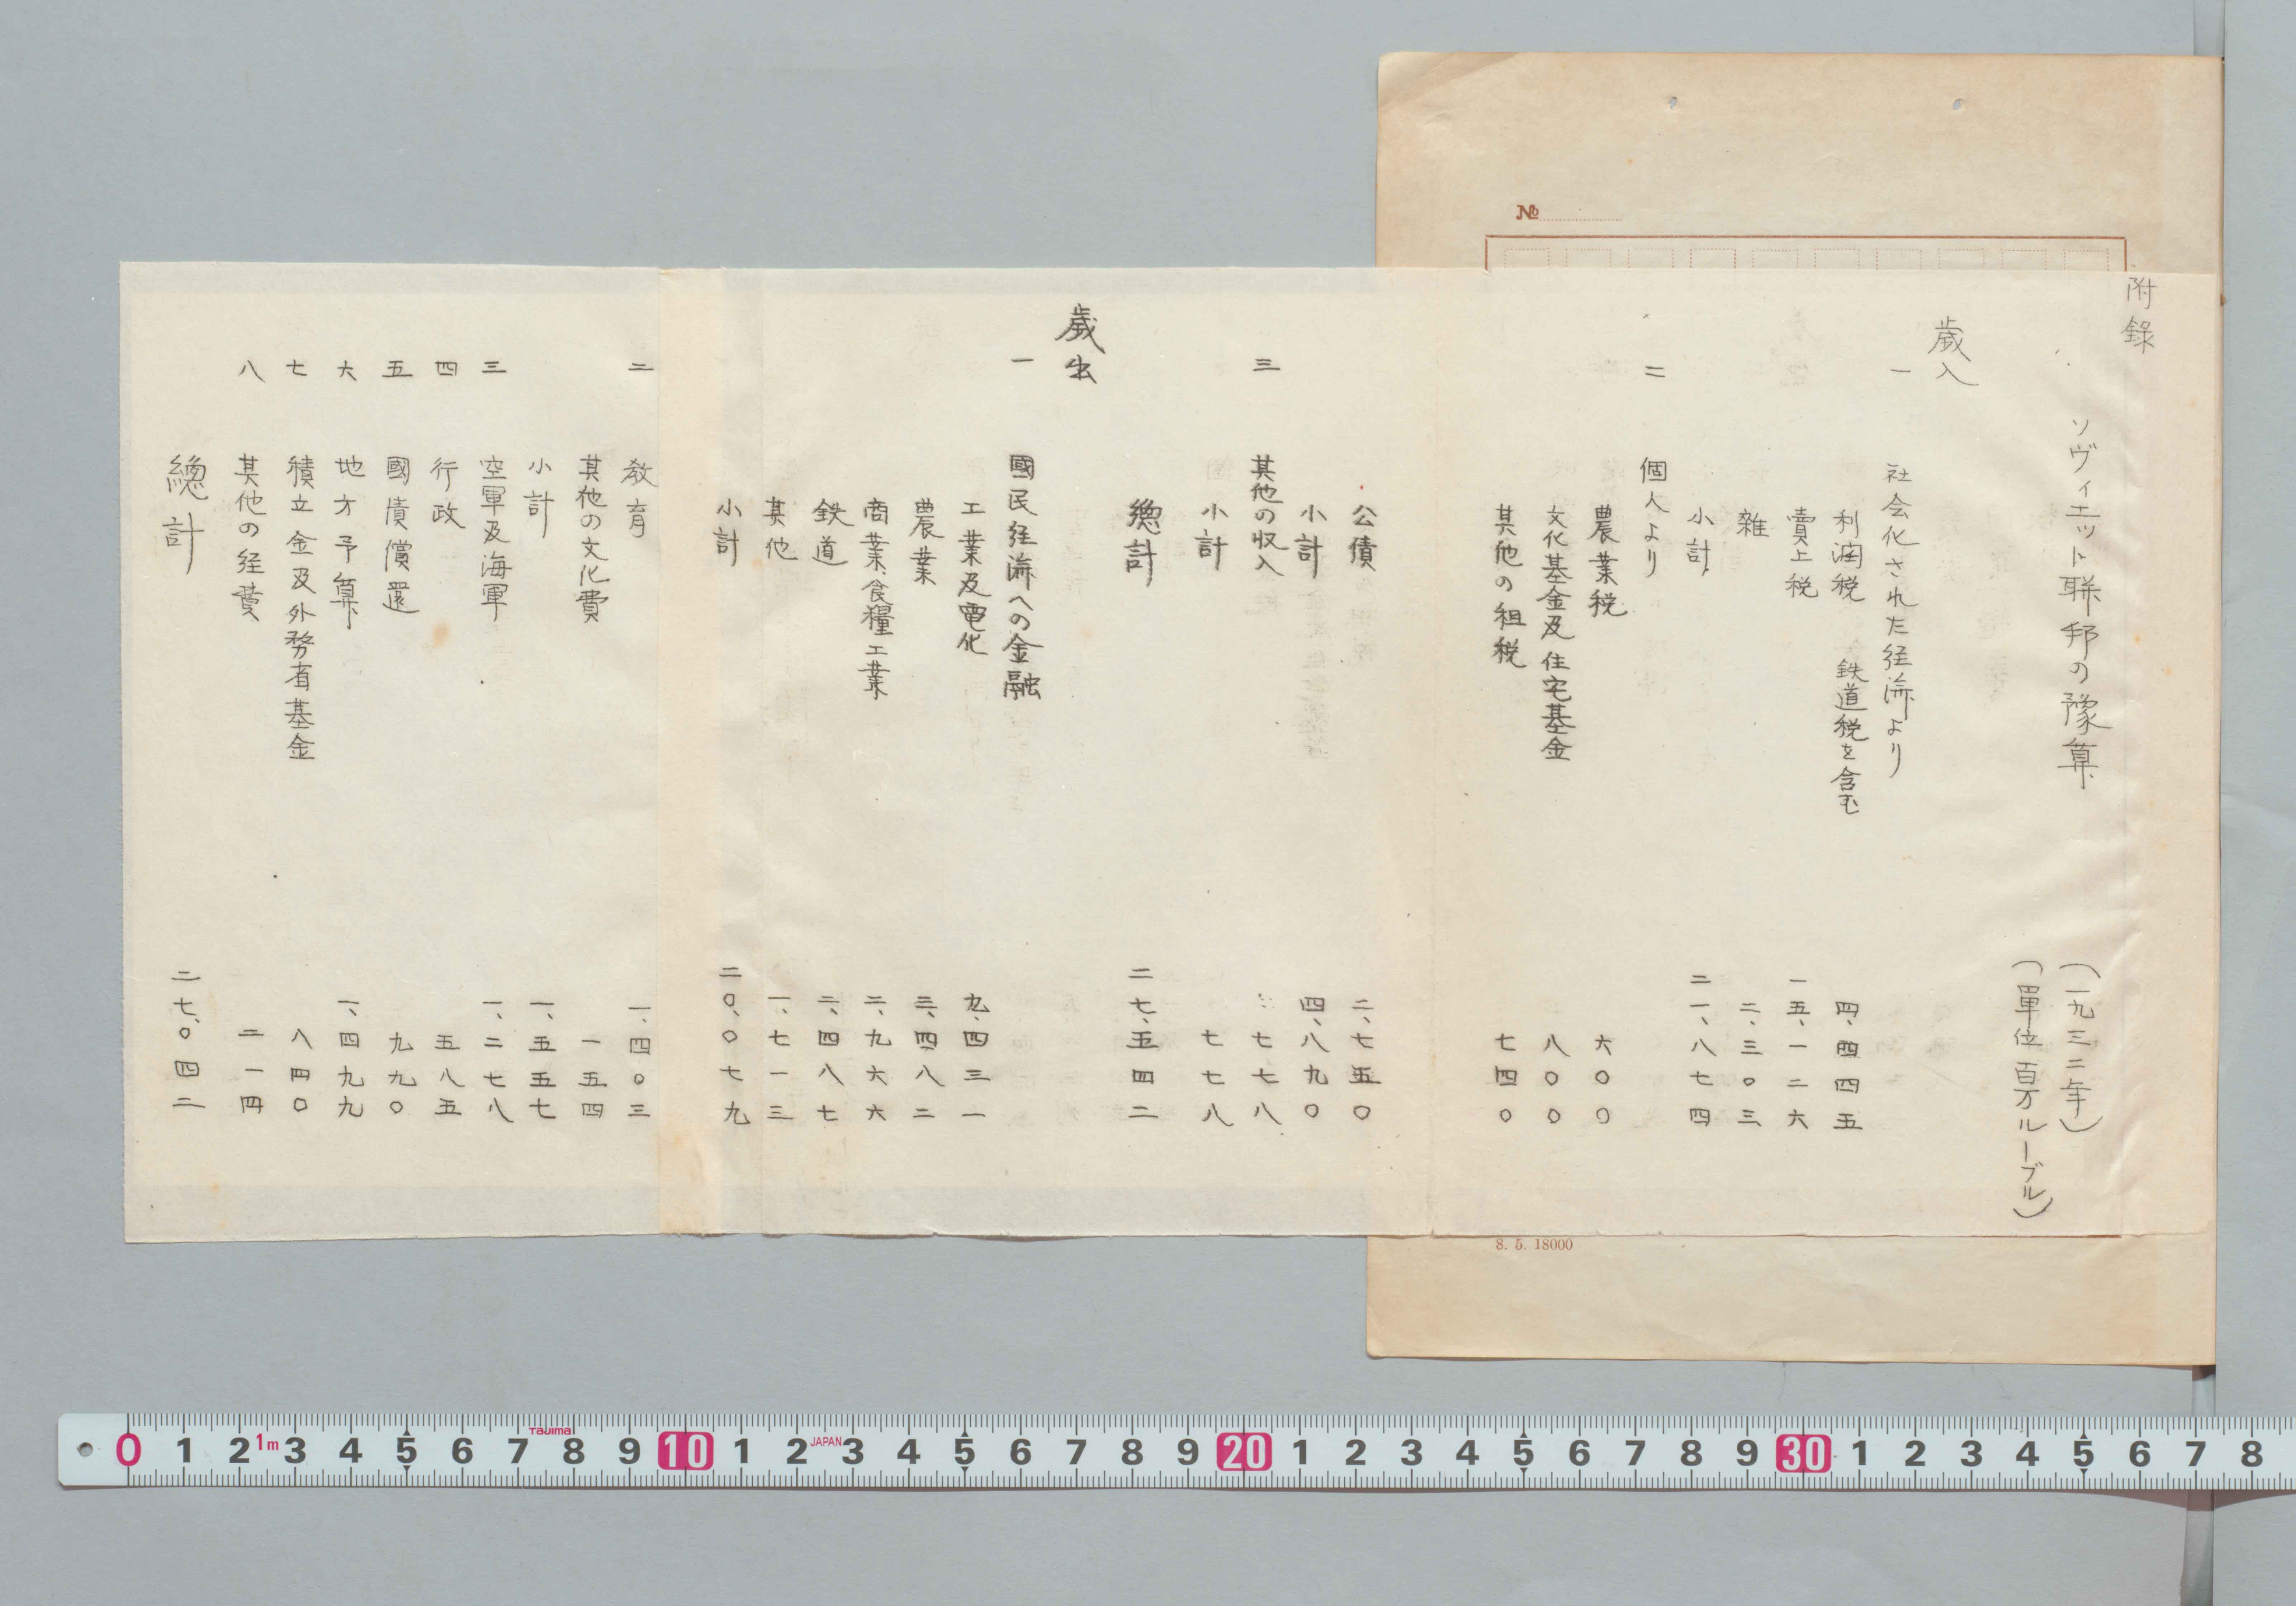 附錄
ソヴィエット聯邦の豫算 (一九三二年)
(單位百万ルーブル)
歳入
一 社会化された経済より
利潤税 鉄道税を含む 四、四四五
賣上税 一五、一二六
雜 二、三〇三
小計 二一、八七四
二 個人より
農業税 六〇〇
文化基金及住宅基金 八〇〇
其他の租税 七四〇
公債 二、七五〇
小計 四、八九〇
三 其他の収入 七七八
小計 七七八
總計 二七、五四二
歳出
一 國民経済への金融
工業及電化 九、四三一
農業 三、四八二
商業、食糧工業 二、九六六
鉄道 二、四八七
其他 一、七一三
小計 二〇、〇七九
二 教育 一、四〇三
其他の文化費 一五四
小計 一、五五七
三 空軍及海軍 一、二七八
四 行政 五八五
五 國債償還 九九〇
六 地方予算 一、四九九
七 積立金及外務省基金 八四〇
八 其他の経費 二一四
總計 二七、〇四二
№
8. 5. 18000
0 1 2 1m 3 4 5 6 7 Tajima 8 9 10 1 2 JAPAN 3 4 5 6 7 8 9 20 1 2 3 4 5 6 7 8 9 30 1 2 3 4 5 6 7 8